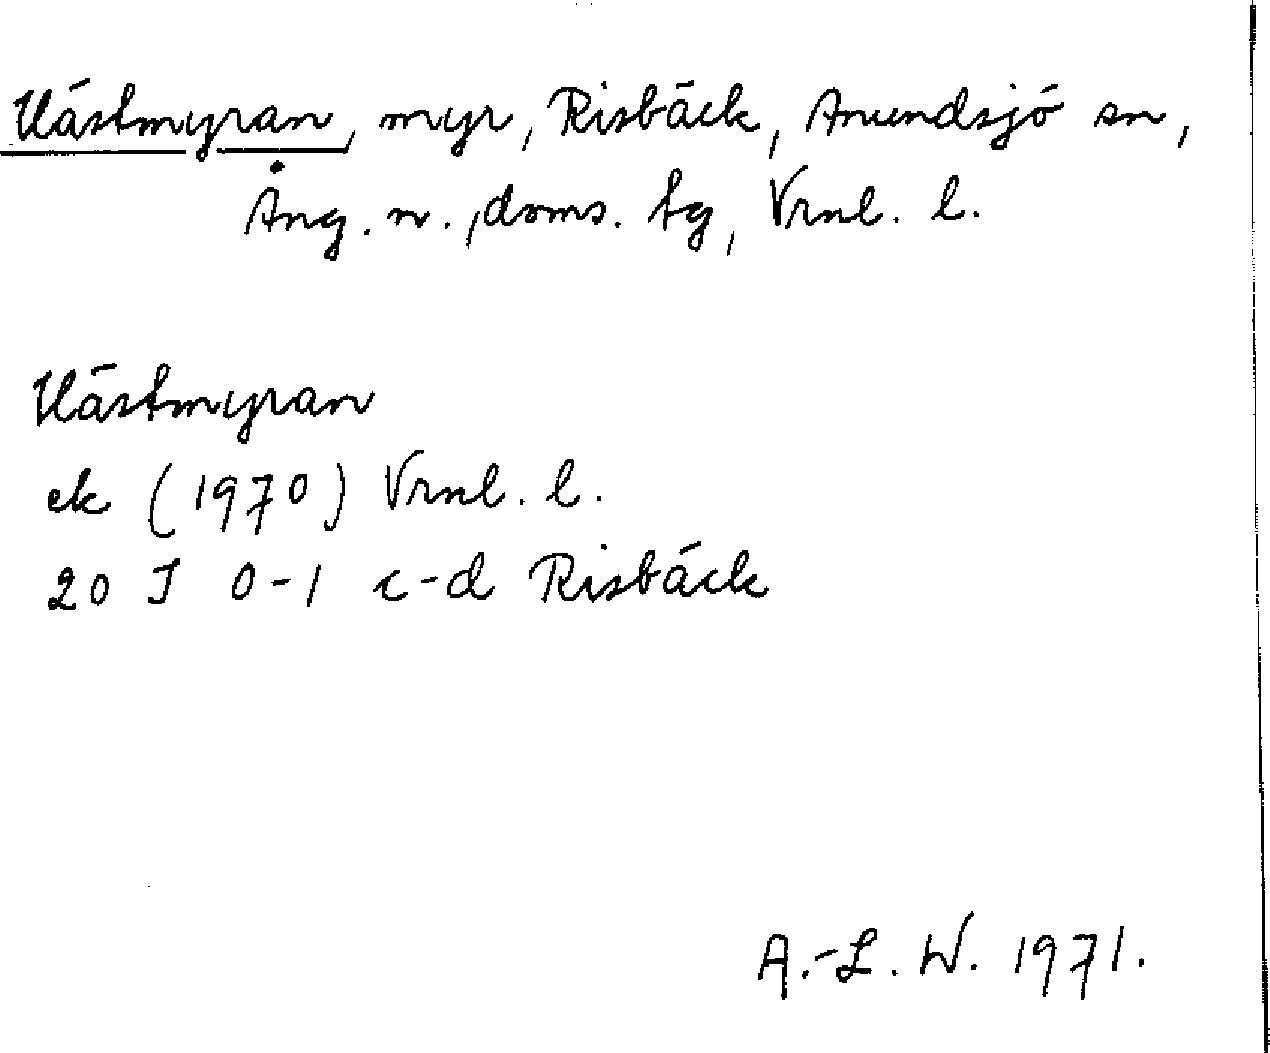 Västmyran, myr, Risbäck, Anundsjö sn,
Ång. n., doms. tg, Vrnl. l.
Västmyran
ek (1970) Vrnl. l.
20 J 0-1 c-d Risbäck
A.-L. W. 1971.